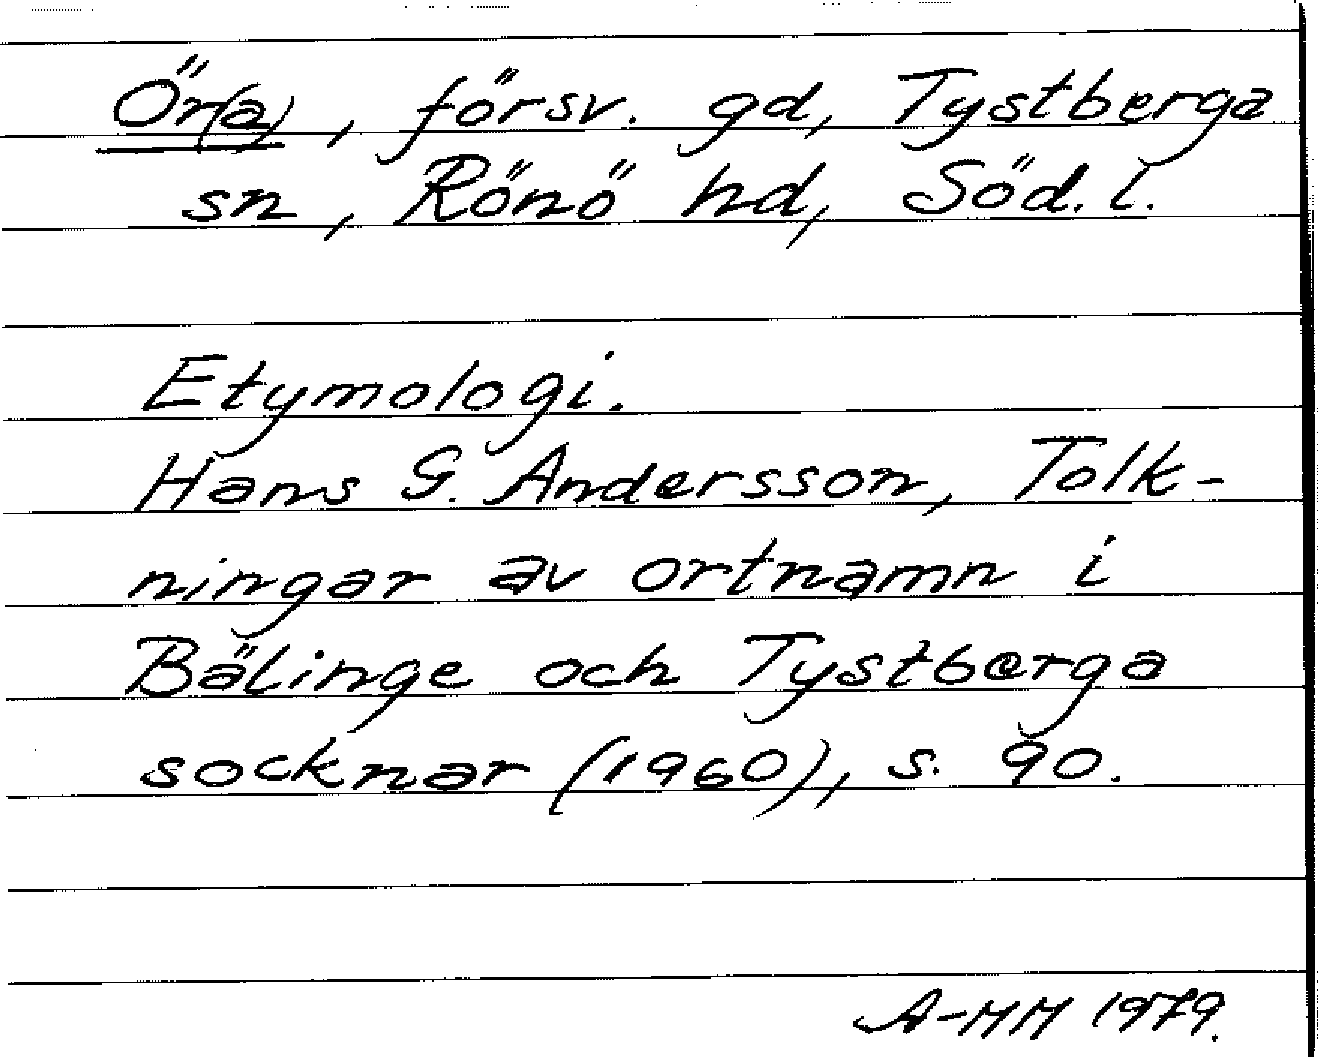 Ör(a), försv. gd, Tystberga
sn, Rönö hd, Söd. l.
Etymologi.
Hans G. Andersson, Tolk-
ningar av ortnamn i
Bälinge och Tystberga
socknar (1960), s. 90.
A-MM 1979.